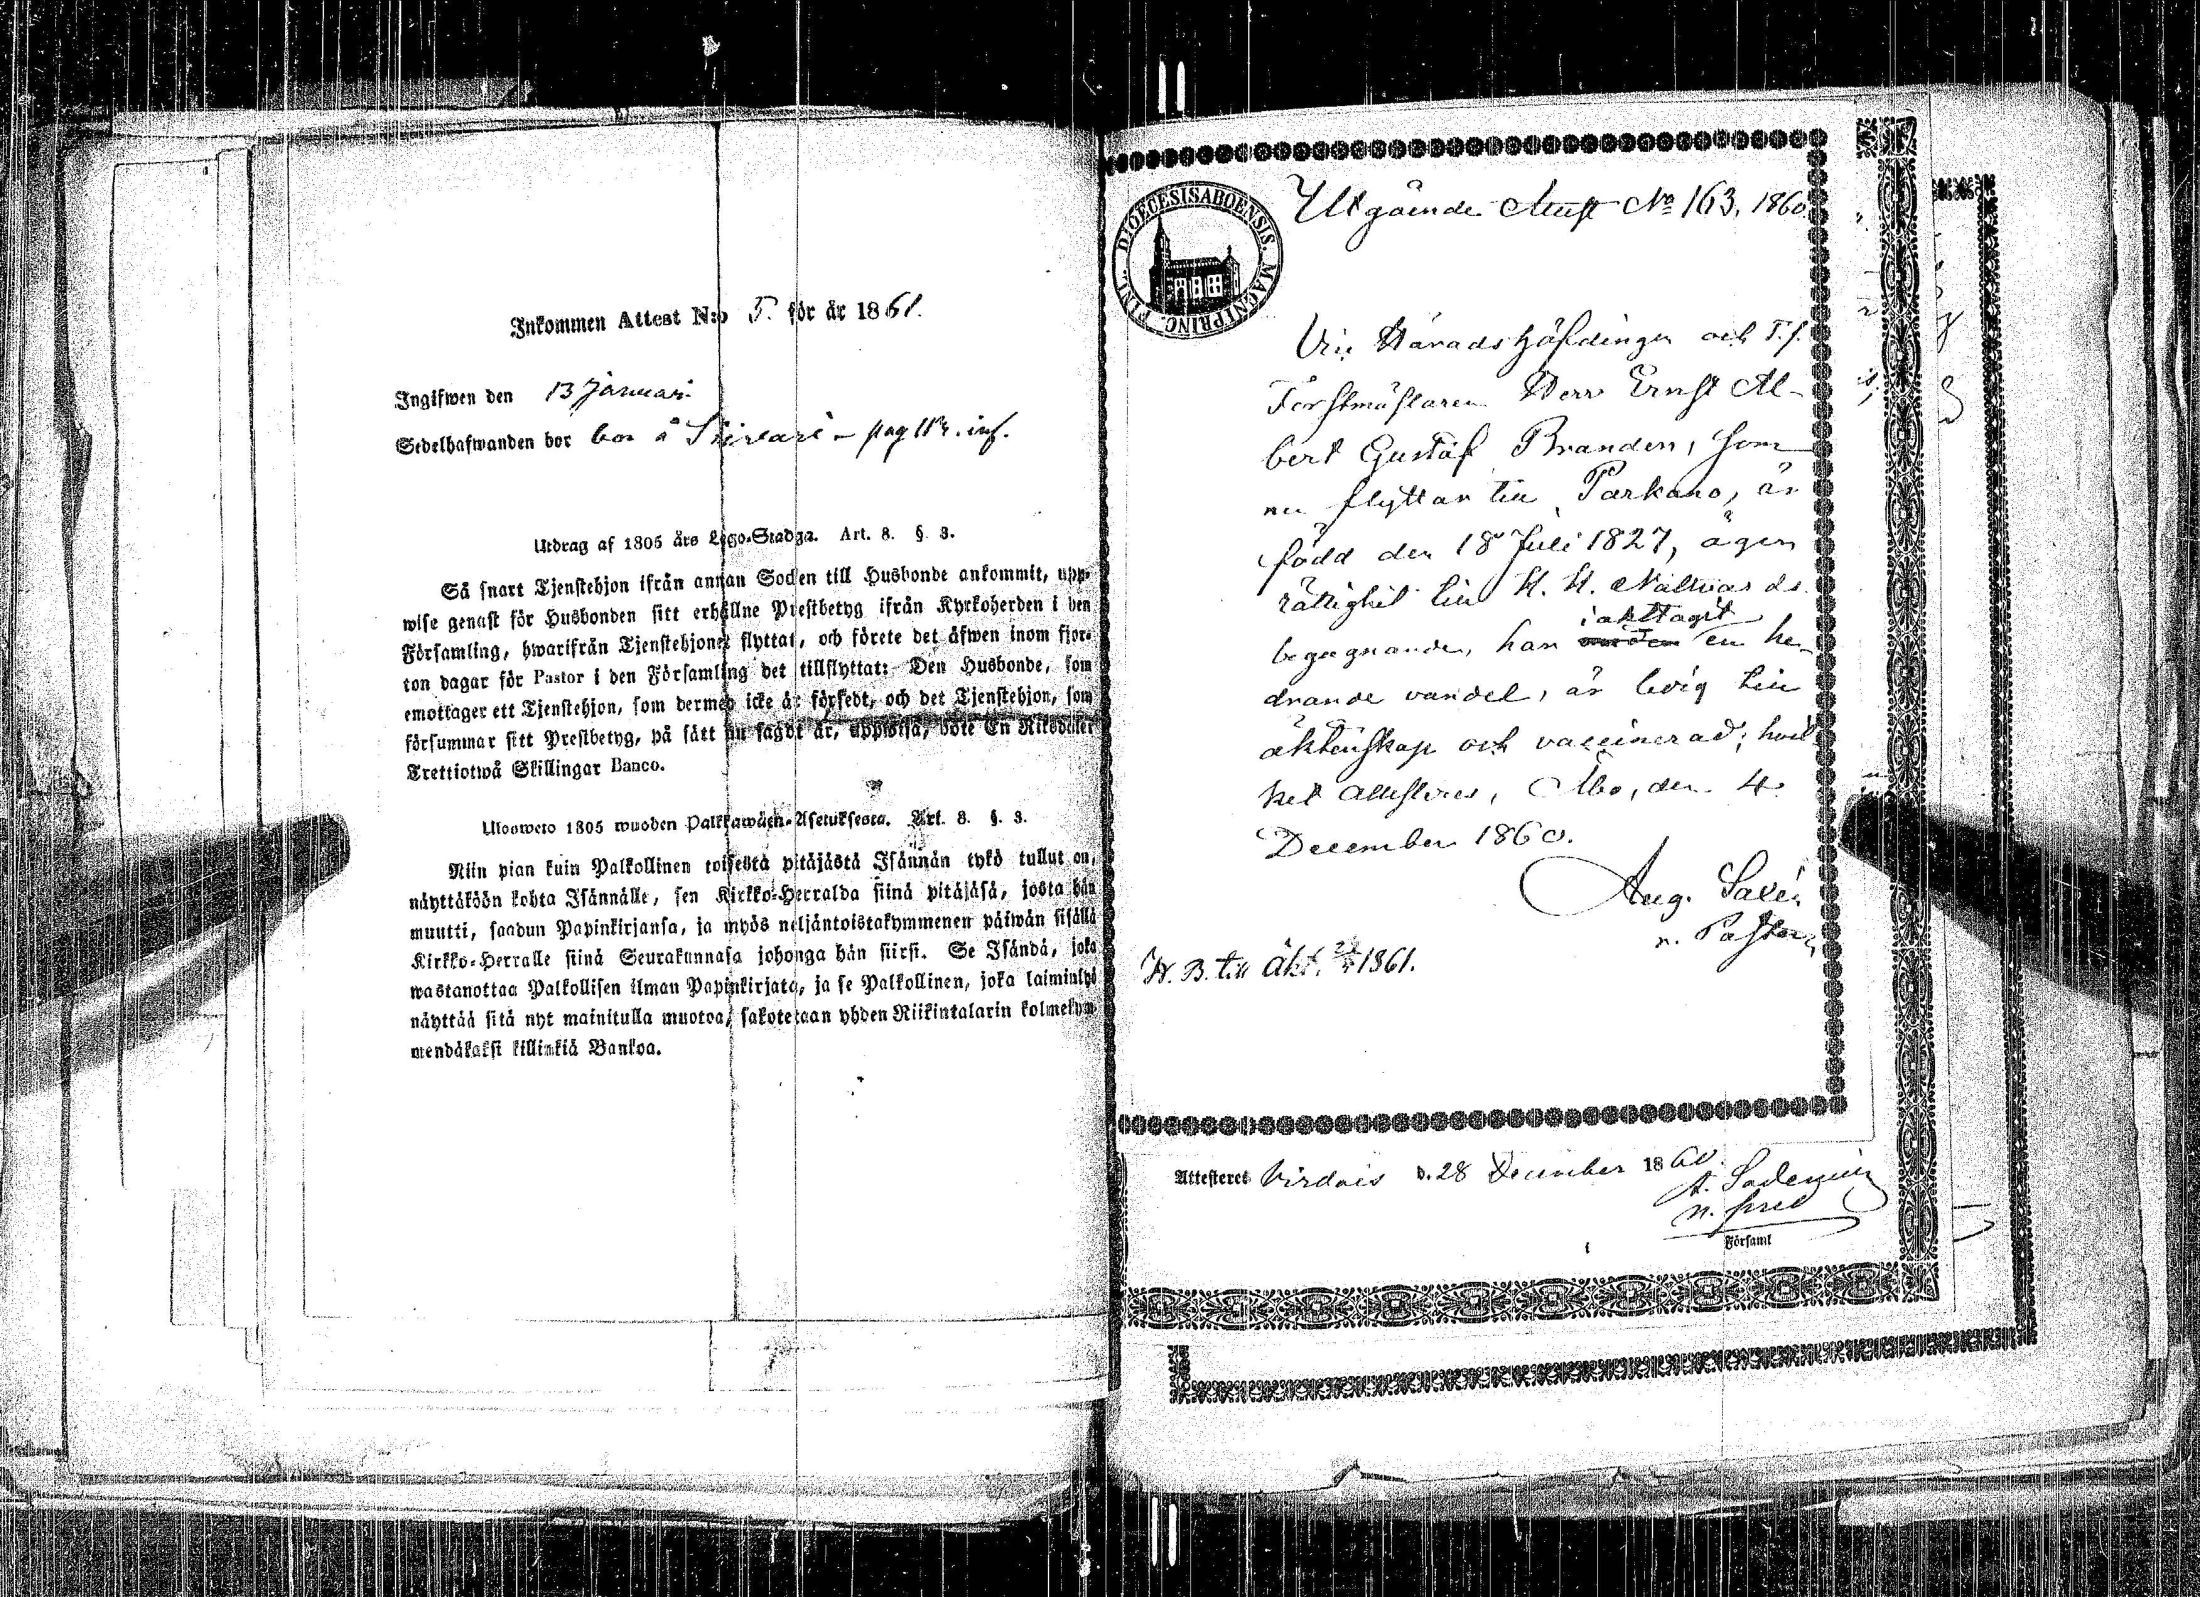 Inkommen Attest N:o 5. för år 1861.
Ingifwen den 13 Januari
Sedelhafwanden bor bor å pag inf.
Utdrag af 1805 års Lego-Stadga. Art. 8. §. 3.
Så snart Tjenstehjon ifrån annan Socken till Husbonde ankommit, upp-
wise genast för Husbonden sitt erhållne Prestbetyg ifrån Kyrkoherden i den
Församling, hwarifrån Tjenstehjonet flyttat, och förete det äfwen inom fjor-
ton dagar för Pastor i den Församling det tillflyttat: Den Husbonde, som
emottager ett Tjenstehjon, som dermed icke är försedt, och det Tjenstehjon, som
försummar sitt Prestbetyg, på sätt nu sagdt är, uppwisa, böte En Riksdaler
Trettiotwå Skillingar Banco.
Ulosweto 1805 wuoden Palkkawäen-Asetuksesta. Art. 8. §. 3.
Niin pian kuin Palkollinen toisesta pitäjästä Isännän tykö tullut on,
näyttäköön kohta Isännälle, sen Kirkko-Herralda siinä pitäjäsä, josta hän
muutti, saadun Papinkirjansa, ja myös neljäntoistakymmenen päiwän sisällä
Kirkko-Herralle siinä Seurakunnasa johonga hän siirsi. Se Isändä, joka
wastanottaa Palkollisen ilman Papinkirjata, ja se Palkollinen, joka laiminlyö
näyttää sitä nyt mainitulla muotoa, sakotetaan yhden Riikintalarin kolmekym-
mendäkaksi killinkiä Bankoa.
DIOECESIS ABOENSIS. MAGNI PRINC. FINL.
Utgående Attest No 163, 1860.
Vice Häradshöfdingen och T.f.
Forstmästaren Herr Ernst Al-
bert Gustaf Branders, som
nu flyttar till Parkano, är
född den 18 Juli 1827, äger
rättighet till H. H. Nattvards
iakttagit
begagnande, har en he-
drande vandel, är ledig till
äktenskap och vaccinerad; hvil-
ket attesteres, Åbo, den 4
December 1860.
Aug. Salén
v. Pastor
H. B. till äkt. 1861.
Attesteres Virdois d. 28 December 1860.
A.
Församl